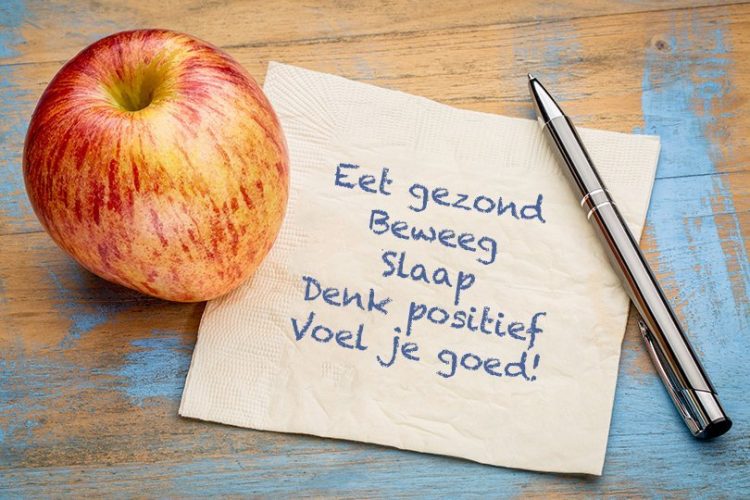 Eet gezond
Beweeg
Slaap
Denk positief
Voel je goed!